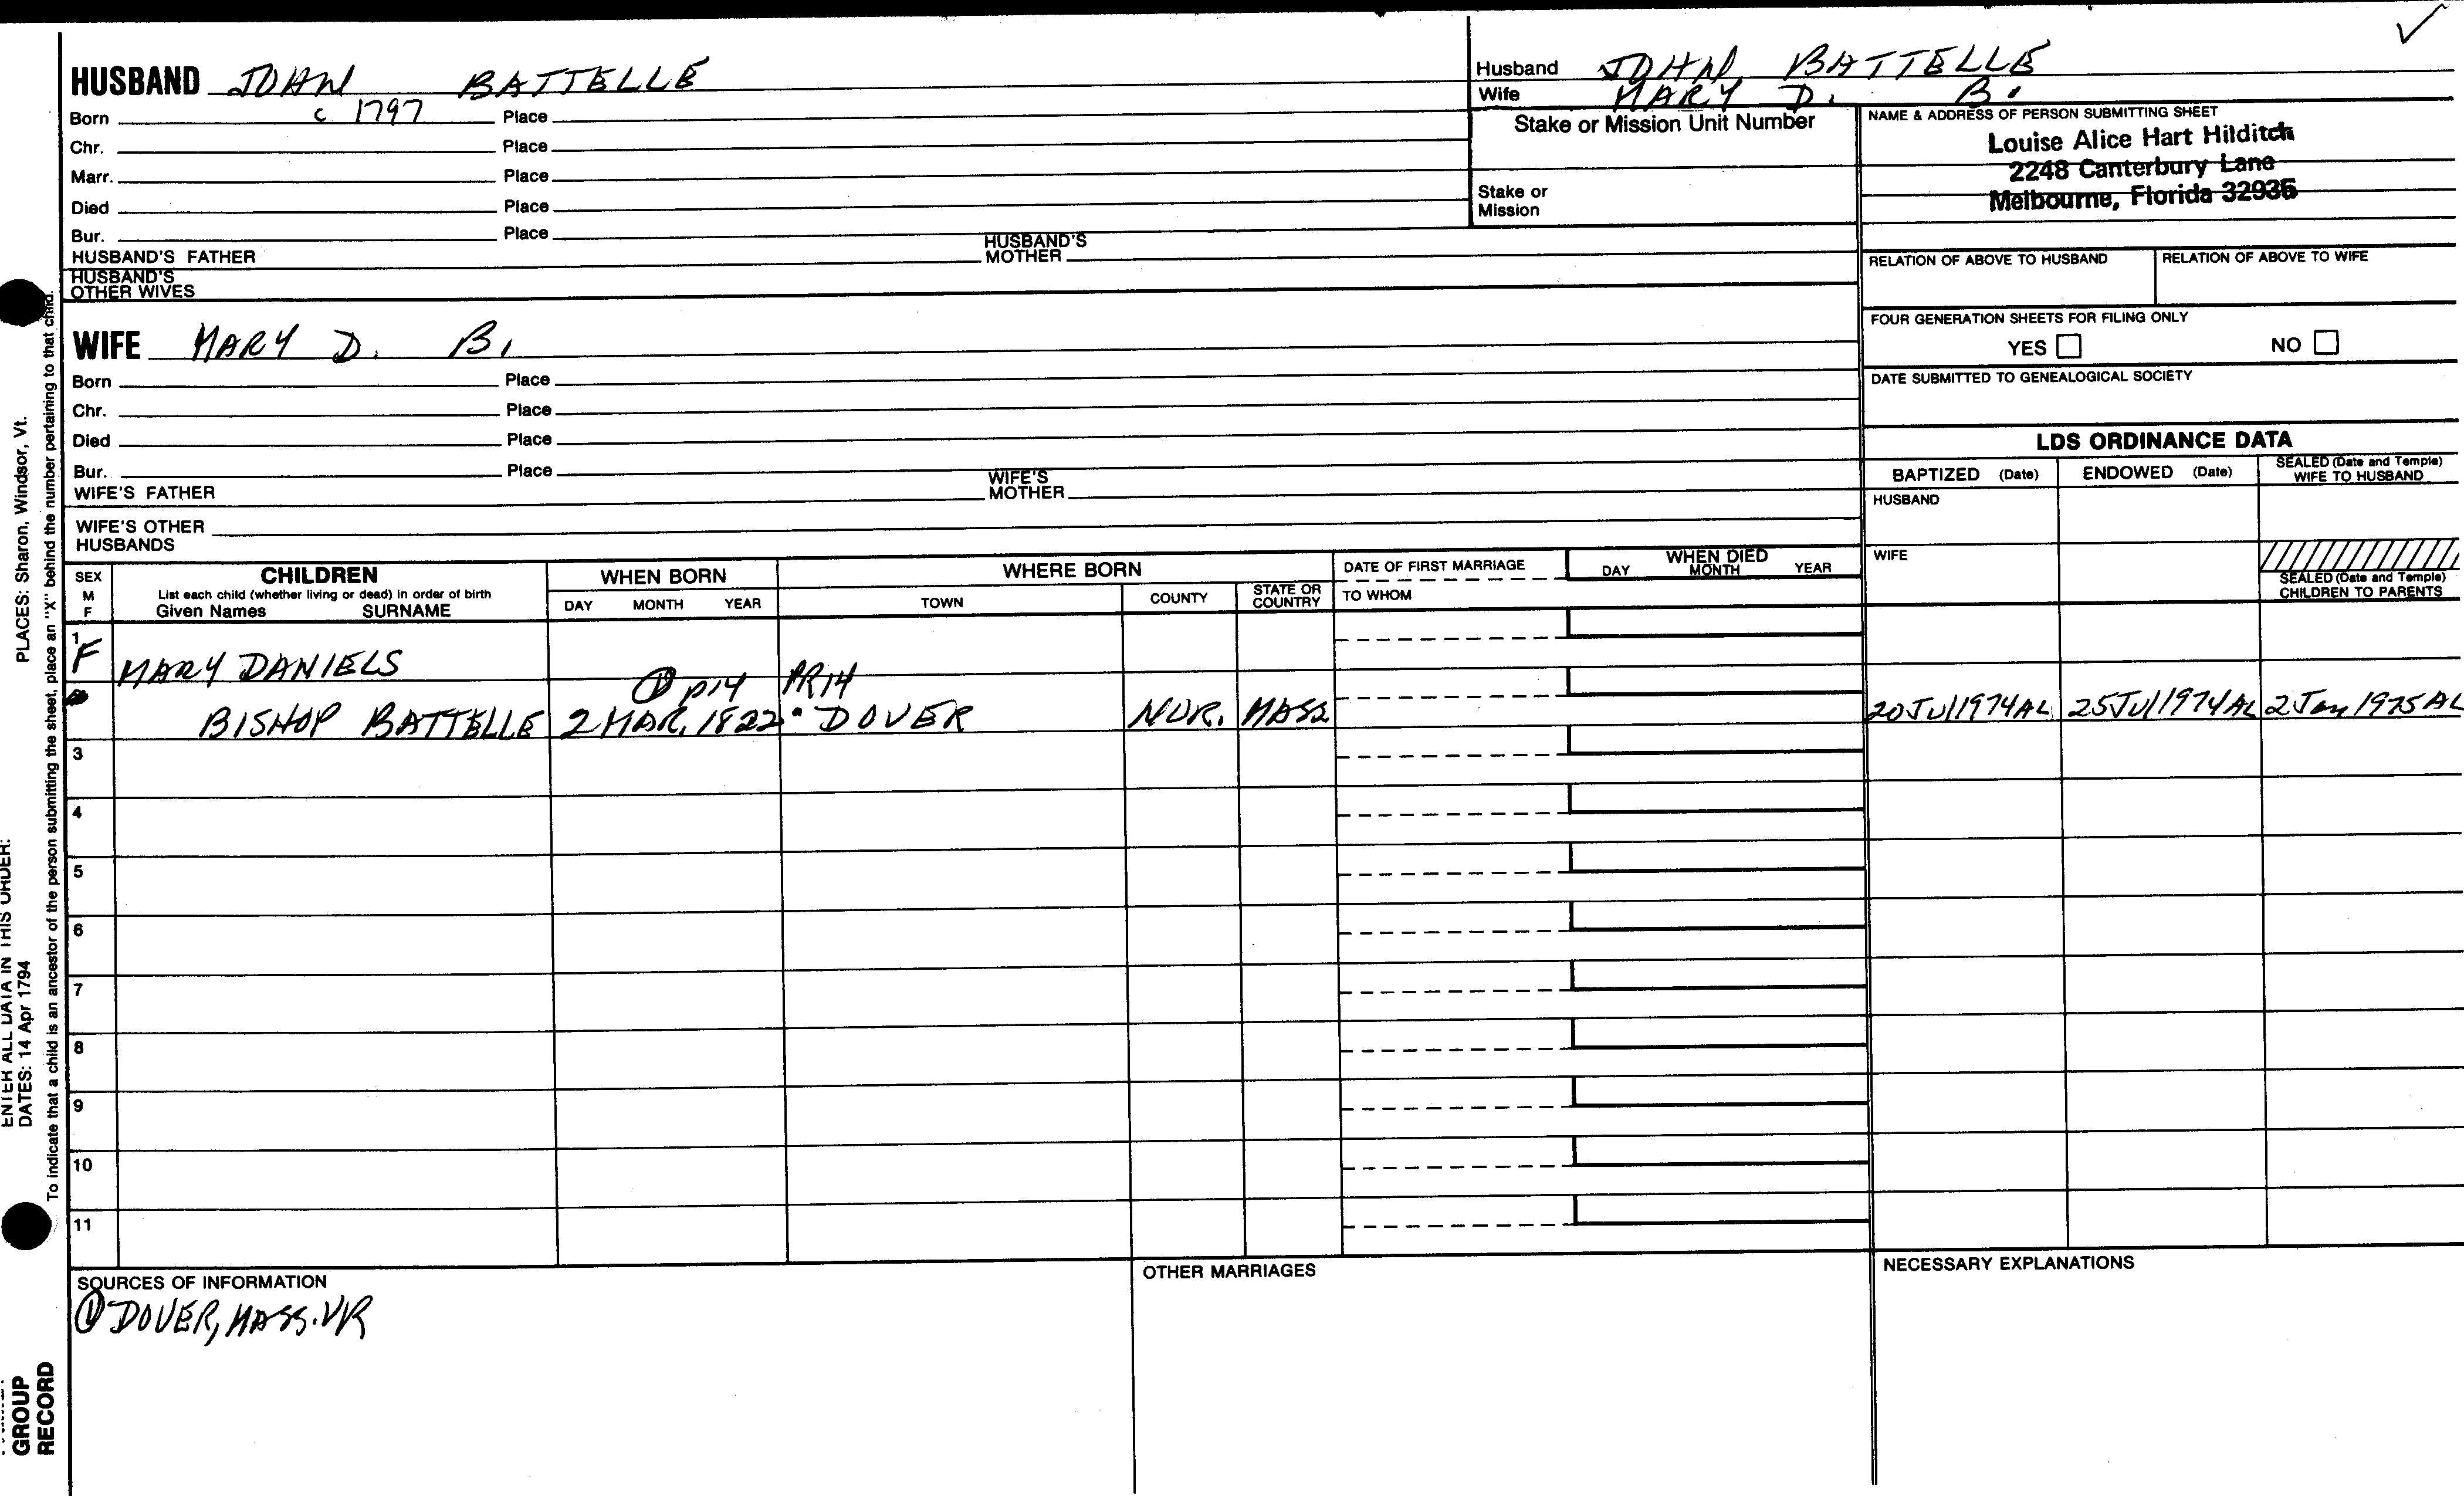 HUSBAND JOHN BATTELLE
Born c 1797 Place
Chr. Place
Marr. Place
Died Place
Bur. Place
HUSBAND'S FATHER HUSBAND'S MOTHER
HUSBAND'S OTHER WIVES
Husband JOHN BATTELLE
Wife MARY D. B.
Stake or Mission Unit Number
Stake or Mission
NAME & ADDRESS OF PERSON SUBMITTING SHEET
Louise Alice Hart Hilditch
2248 Canterbury Lane
Melbourne, Florida 32935
RELATION OF ABOVE TO HUSBAND RELATION OF ABOVE TO WIFE
FOUR GENERATION SHEETS FOR FILING ONLY
YES NO
DATE SUBMITTED TO GENEALOGICAL SOCIETY
WIFE MARY D. B.
Born Place
Chr. Place
Died Place
Bur. Place
WIFE'S FATHER WIFE'S MOTHER
WIFE'S OTHER HUSBANDS
LDS ORDINANCE DATA
BAPTIZED (Date) ENDOWED (Date) SEALED (Date and Temple) WIFE TO HUSBAND
HUSBAND
WIFE
SEALED (Date and Temple) CHILDREN TO PARENTS
SEX M F
CHILDREN
List each child (whether living or dead) in order of birth
Given Names SURNAME
WHEN BORN
DAY MONTH YEAR
WHERE BORN
TOWN COUNTY STATE OR COUNTRY
DATE OF FIRST MARRIAGE
TO WHOM
WHEN DIED
DAY MONTH YEAR
1 F MARY DANIELS
① P14 PR14
BISHOP BATTELLE 2 MAR. 1822 DOVER NOR. MASS 20 Jul 1974 AL 25 Jul 1974 AL 2 Jan 1975 AL
3
4
5
6
7
8
9
10
11
SOURCES OF INFORMATION
① DOVER, MASS. VR
OTHER MARRIAGES
NECESSARY EXPLANATIONS
PLACES: Sharon, Windsor, Vt.
ENTER ALL DATA IN THIS ORDER:
DATES: 14 Apr 1794
To indicate that a child is an ancestor of the person submitting the sheet, place an "X" behind the number pertaining to that child.
GROUP
RECORD